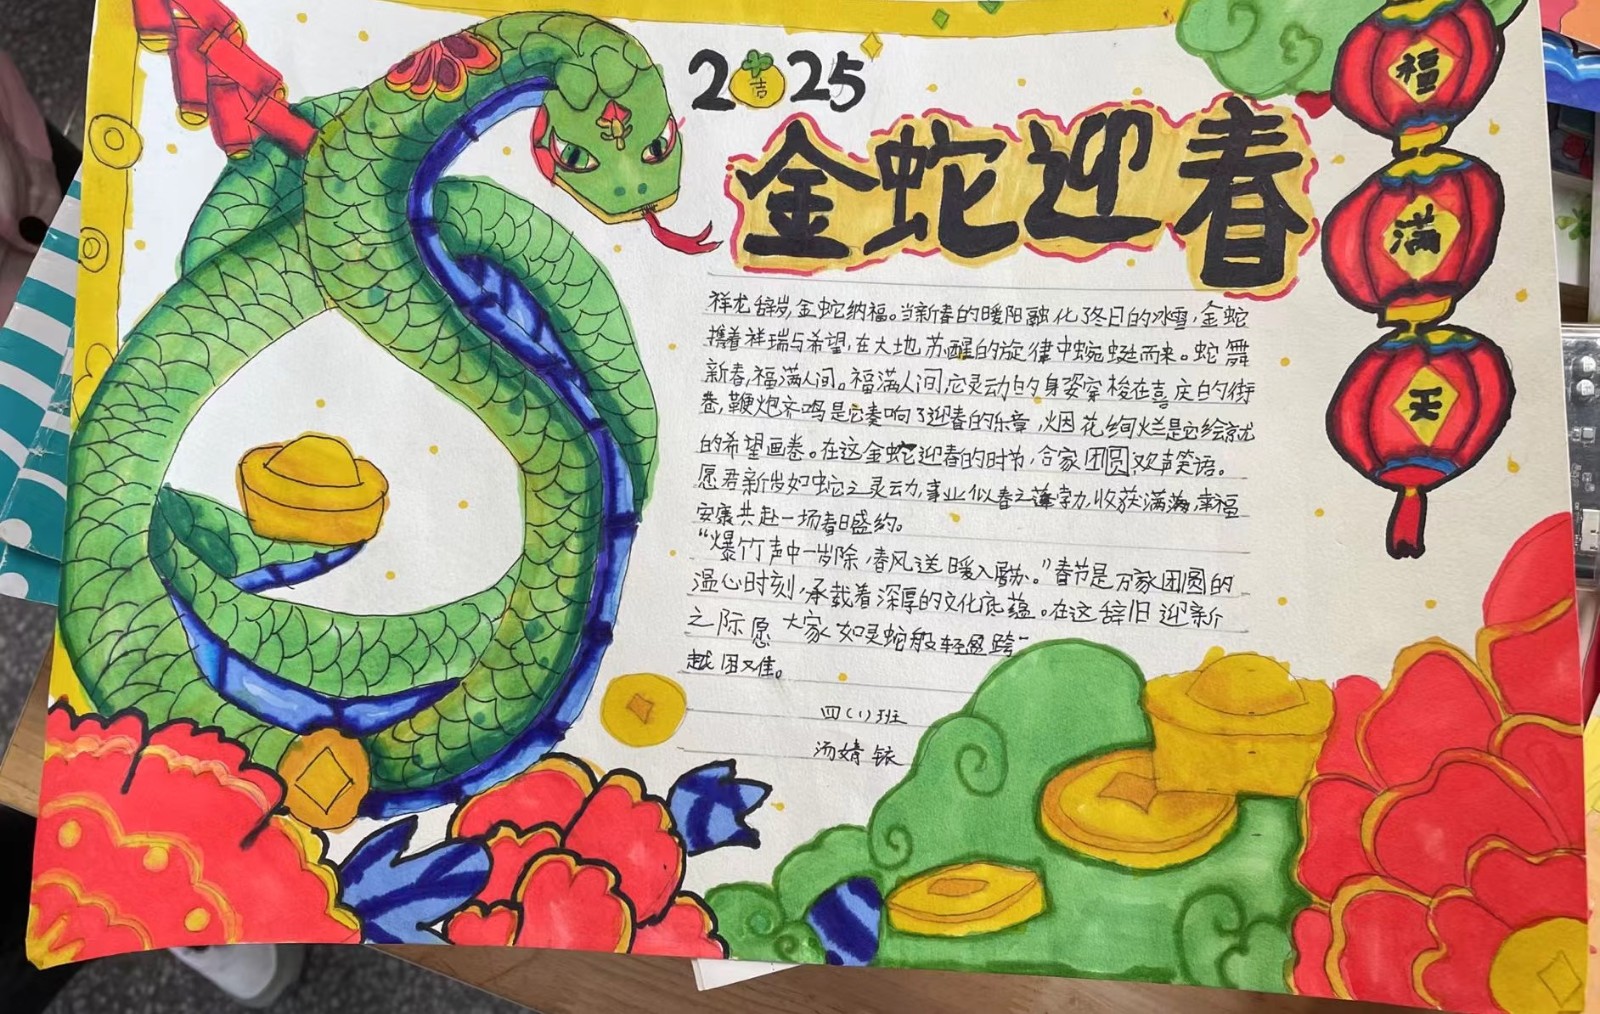 2025
吉
金蛇迎春
福
满
天
祥龙辞岁,金蛇纳福。当新春的暖阳融化了冬日的冰雪,金蛇
携着祥瑞与希望,在大地苏醒的旋律中蜿蜒而来。蛇舞
新春,福满人间。福满人间,它灵动的身姿穿梭在喜庆的街
巷,鞭炮齐鸣是它奏响了迎春的乐章,烟花绚烂是它绘就
的希望画卷。在这金蛇迎春的时节,合家团圆欢声笑语。
愿君新岁如蛇之灵动,事业似春之蓬勃,收获满满,幸福
安康共赴一场春日盛约。
“爆竹声中一岁除,春风送暖入屠苏。”春节是万家团圆的
温心时刻,承载着深厚的文化底蕴。在这辞旧迎新
之际愿大家如灵蛇般轻盈跨
越困难。
四(1)班
汤婧